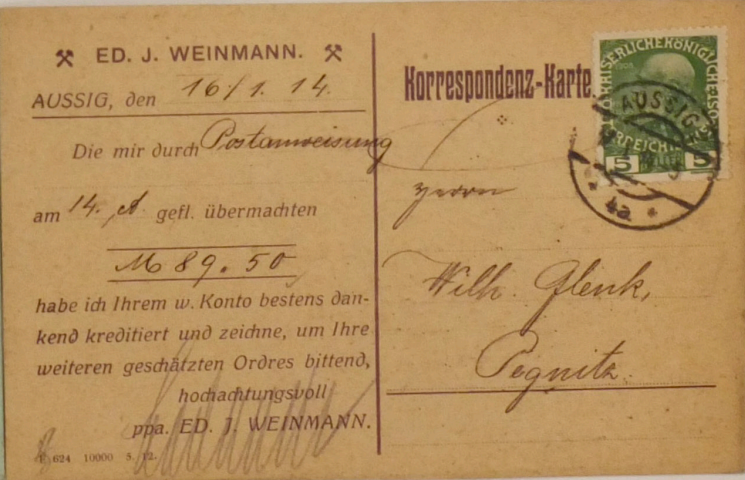 ⚒ ED. J. WEINMANN. ⚒
AUSSIG, den 16/1. 14.
Die mir durch Postanweisung
am 14. gefl. übermachten
M 89.50
habe ich Ihrem w. Konto bestens dan-
kend kreditiert und zeichne, um Ihre
weiteren geschätzten Ordres bittend,
hochachtungsvoll
ppa. ED. J. WEINMANN.
624 10000 5. 12.
Korrespondenz-Karte.
Herrn
Wilh. Glenk,
Pegnitz.
AUSSIG
5 5
4a